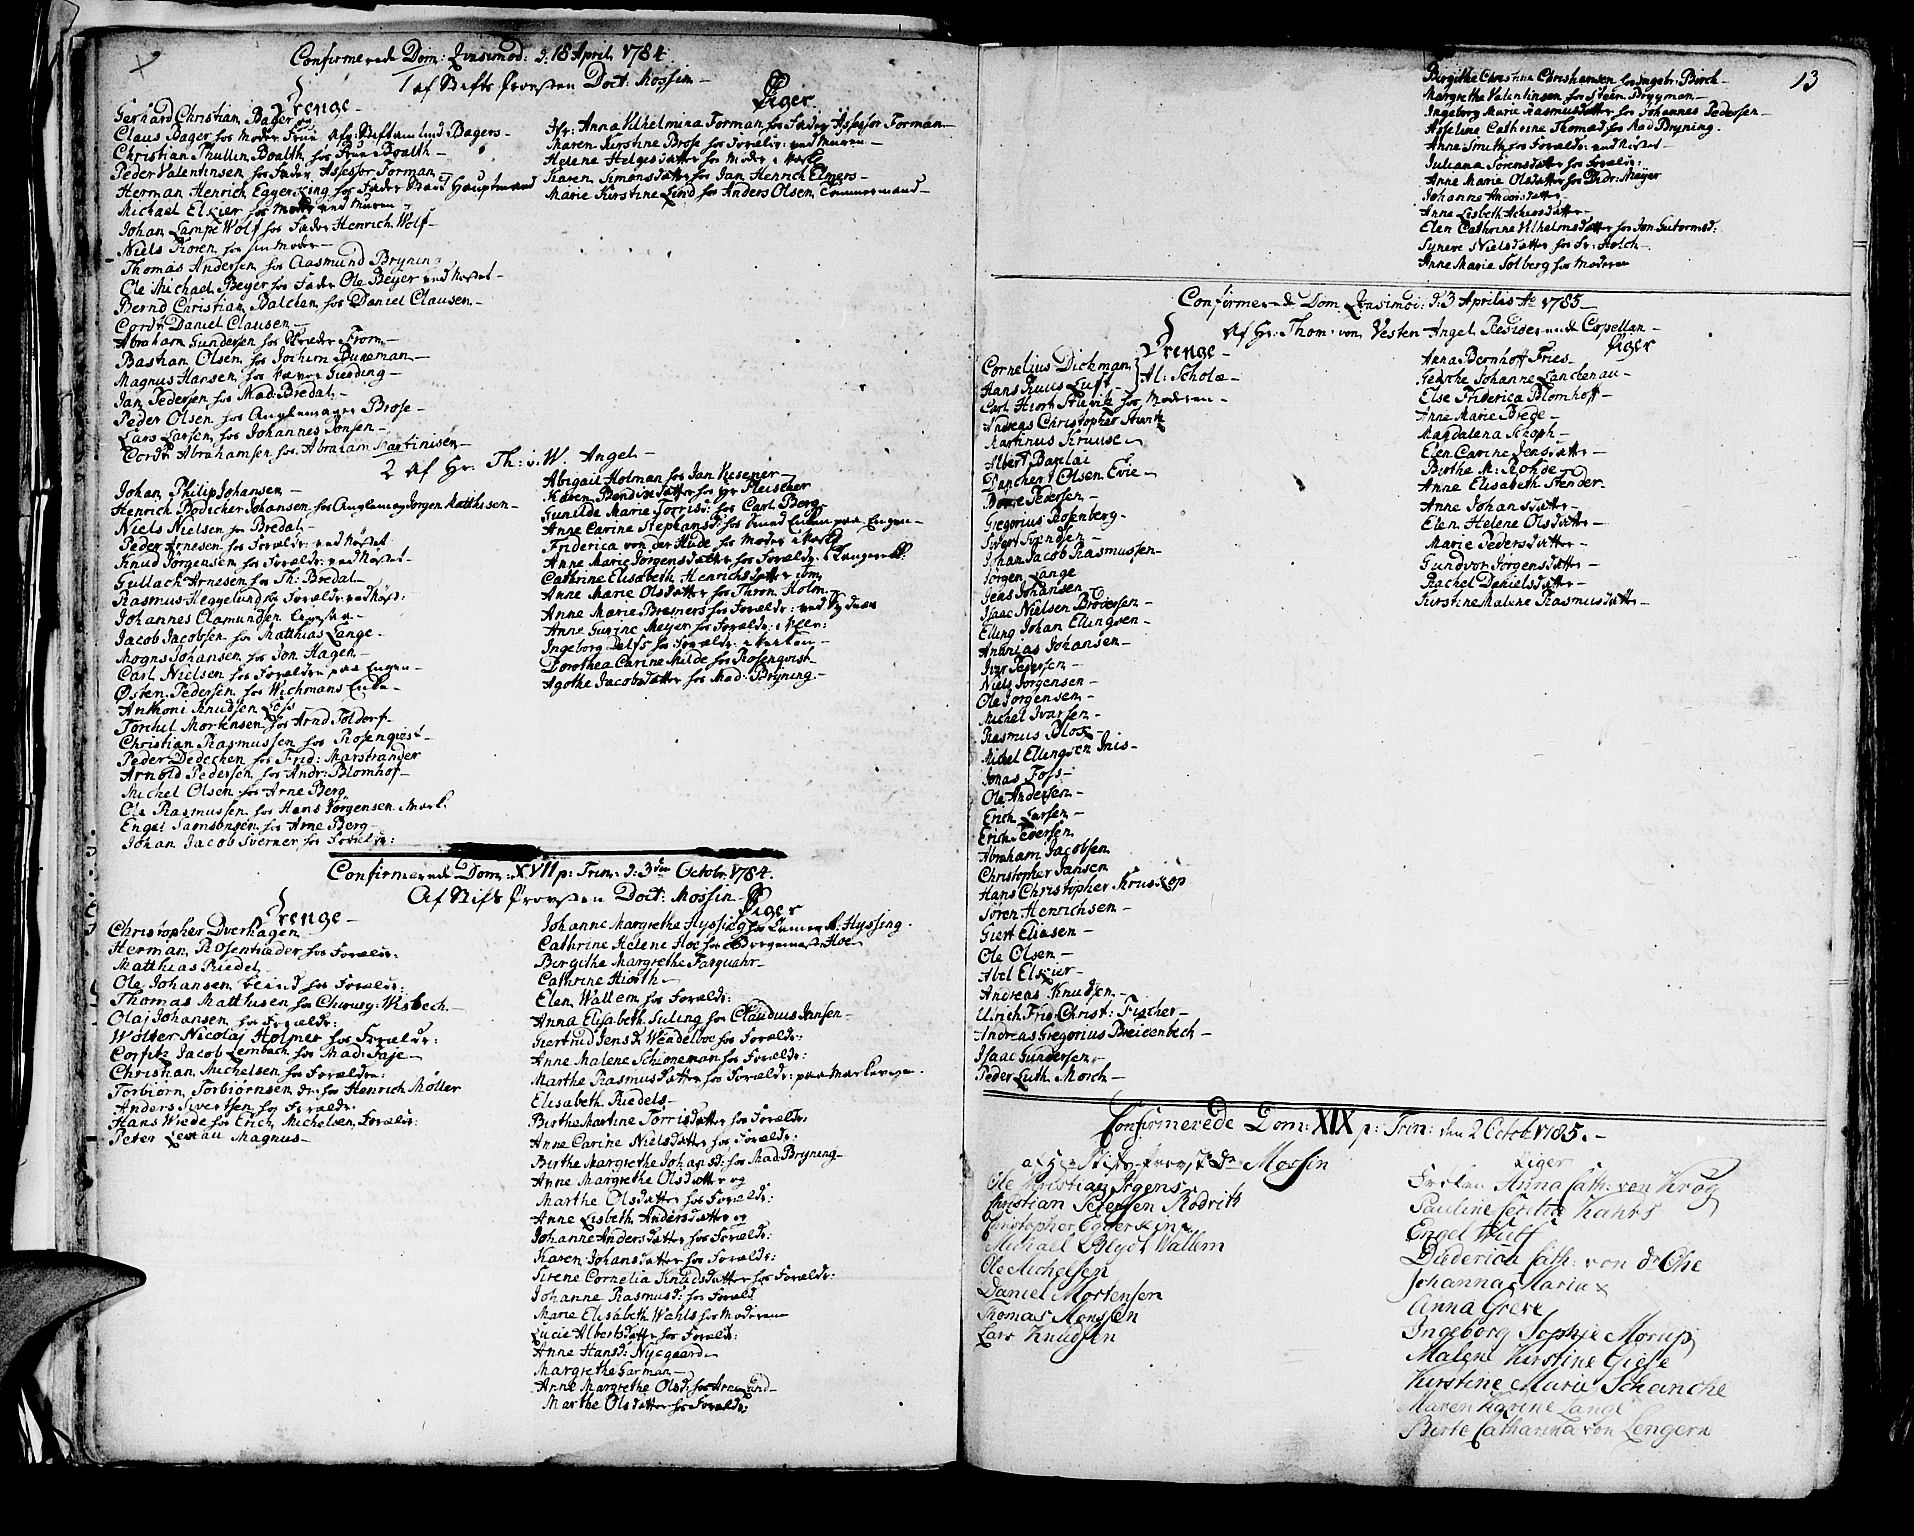 Confirmerede Dom: Qvasimod: d. 18 April 1784.
1 af Stifts Provsten Doct: Mossin
Drenge
Gerhard Christian Bager og
Claus Bager for Moder Frue Afg: Stiftamtmd Bagers
Christian Thullin Boalth for Frue Boalth
Peder Valentinsen for Fader Assessor Forman
Herman Henrich Eggerking for Fader Hauptmand
Michael Elzier for Moder ved Muren
Johan Lampe Wolf for Fader Henrich Wolf
Niels Koren for sin Moder
Thomas Andersen for Aasmund Bryning
Ole Michael Beyer for Fader Ole Beyer
Bernd Christian Balchen for Daniel Clausen
Cordt Daniel Clausen
Abraham Gundersen for Skræder From
Bastian Olsen for Jochim Buneman
Magnus Hansen for Gierding
Jan Pedersen for Mad: Bredal
Peder Olsen for Anglemager Brose
Lars Larsen for Johannes Jonsen
Cordt Abrahamsen for Abraham Martinisen
Piger
Jfr: Anna Vilhelmina Forman for Fader Assessor Forman
Maren Kirstine Brose for Foreldr: ved Muren
Helene Helgesdatter for Moder
Karen Simonsdatter for Jan Henrich Elmers
Marie Kirstine Lind for Anders Olsen Tømmermand
2 Af Hr: Th: v. W. Angel
Johan Philip Johansen
Henrich Bødicher Johansen for Anglemag Jørgen Matthesen
Niels Nielsen for Bredal
Peder Arnesen for Forældr:
Knud Jørgensen for Forældr:
Gullach Arnesen for Th: Bredal
Rasmus Heggelund for Forældr:
Johannes Aamundsen
Jacob Jacobsen for Matthias Lange
Mogns Johansen for Jon Hagen
Carl Nielsen for Forældre paa Engen
Østen Pedersen for Wichmans Enke
Anthoni Knudsen Løss
Torchil Mortensen for Arnd Toldorf
Christian Rasmussen for Rosenqvist
Peder Dedechen for Frid: Marstrander
Arnold Pedersen for Andr: Blomhof
Michel Olsen for Arne Berg
Ole Rasmussen for Hans Jørgensen
Engel Samsonsen for Arne Berg
Johan Jacob Sverner for Foreldr:
Abigail Holman for Jan Kesener
Karen Bendixdatter for Hr Fleischer
Gunilde Marie Torrisd: for Carl Berg
Anne Carine Stephansd: for Enken paa Engen
Friderica von der Hude for Moder
Anne Marie Jørgensdatter for Forældr:
Cathrine Elisabeth Henrichsdatter
Anne Marie Olsdatter for Thron Holm
Anne Marie Bremers for Foreldr:
Anne Gurine Meyer for Forældr:
Ingeborg Dahls for Forældr:
Dorothea Carine Milde for Rosenqvist
Agothe Jacobsdatter for Mad: Bryning
Confirmerede Dom: XVII p: Trin: d: 3den Octobr. 1784.
Af Stifts Provsten Doct: Mossin
Drenge
Christopher Dverhagen
Herman Rosentræder for Forælr:
Matthias Riedel
Ole Johansen for Forældr:
Thomas Matthisen for Chirurg: Wisbech
Olaj Johansen for Forældr:
Wolter Nicolaj Holmer for Forældr:
Corfitz Jacob Lembach for Mad: Faje
Christian Michelsen for Forældre:
Torbiørn Torbiørnsen for Henrich Møller
Anders Sivertsen for Forældr:
Hans Wiede for Erich Michelsen Forælr:
Peter Magnus
Piger
Johanne Margrethe Hyssing for Hyssing
Cathrine Helene Hoe for Borgemest: Hoe
Birgithe Margrethe Farquahr
Cathrine Hiorth
Elen Wallem for Forældr:
Anna Elisabeth Suling for Claudius Jansen
Giertrud Jensd: Wendelboe for Forældr:
Anne Malene Schioneman for Forældr:
Marthe Rasmusdatter for Forældr:
Elisabeth Riedels
Birthe Martine Torrisdatter for Forældr
Anne Carine Nielsdatter for Forældr:
Birthe Margrethe Johansd: for Mad: Bryning
Anne Margrethe Olsdatter og
Marthe Olsdatter for Forældr:
Anne Lisbeth Andersdatter og
Johanne Andersdatter for Forældr:
Karen Johansdatter for Forældr:
Sirene Cornelia Knudsdatter for Forældr:
Johanne Rasmusd: for Foræld
Marie Elisabeth Wahls for Moderen
Lucie Albertsdatter for Forældr:
Anne Hansd: Nyegaard
Margrethe Garman
Anne Margrethe Olsd: for Arne Lund
Marthe Olsdatter for Forældr:
13
Birgithe Christina Christiansen for Ingebr: Birch
Margrethe Valentinsen for Steen Bryyman
Ingeborg Marie Rasmusdatter for Johannes Pedersen
Asseline Cathrine Thomasd for Mad Bryning
Anne Smith for Forældr:
Juliana Sørensdatter for Forælr:
Anne Marie Olsdatter for Didr: Meyer
Johanne Andersdatter
Anne Lisbeth Achersdatter
Elen Cathrine Vilhelmsdatter for Jon Gutormsd:
Syneve Nielsdatter for Fr: Holch
Anne Marie Solberg for Moderen
Confirmerede Dom Qvasimod: d: 3 Aprilis Ao 1785
Af Hr: Thom: von Vesten Angel Residerende Capellan
Drenge
Cornelius Dichman
Hans Ruus Luft } Al: Scholæ
Carl Hiort for Moderen
Andreas Christopher Stuntz
Martinus Kruuse
Albert Barclai
Danchert Olsen Evie
Børre Pedersen
Gregorius Rosenberg
Sivert Svendsen
Johan Jacob Rasmussen
Jørgen Lange
Jens Johansen
Isaac Nielsen Brodersen
Elling Johan Ellingsen
Antonias Johansen
Iver Pedersen
Niels Jørgensen
Ole Jørgensen
Michel Ivarsen
Rasmus Blox
Michel Ellingsen Inis
Jonas Foss
Ole Andersen
Erich Larsen
Erich Iversen
Abraham Jacobsen
Christopher Jansen
Hans Christopher Kruskop
Søren Henrichsen
Giert Eliasen
Ole Olsen
Abel Elzier
Andreas Knudsen
Ulrich Frid Christ: Fischer
Andreas Gregorius Breidenbech
Isaac Gundersen
Peder Luth Morch
Piger
Anna Bernhoff Fries
Gesche Johanne Landenau
Else Friderica Blomhoff
Anne Marie Brede
Magdalena Schoph
Elen Carine Jensdatter
Birthe M: Rohde
Anne Elisabeth Stender
Anne Johansdatter
Elen Helene Olsdatter
Marie Pedersdatter
Gundvor Jørgensdatter
Rachel Danielsdatter
Kirstine Malene Rasmusdatter
Confirmerede Dom: XIX p: Trin: den 2 Octob 1785.
af Hr Stifts-Provst Dr Mossin
Ole Christian Irgens
Christian Petersen Rodritz
Christopher Eggerking
Michael Blydt Wallem
Ole Michelsen
Daniel Mortensen
Thomas Monssen
Lars Knudsen
Piger
Frøken Anna Cath: von Krog
Pauline Cecilia Kahrs
Engel Wulf
Diderica Cath: von der Ohe
Johanna Maria
Anna Greve
Ingeborg Sophie Morup
Malene Kirstine Giese
Kirstine Maria Schanche
Maren Karine Lange
Birte Catharina von Lengern